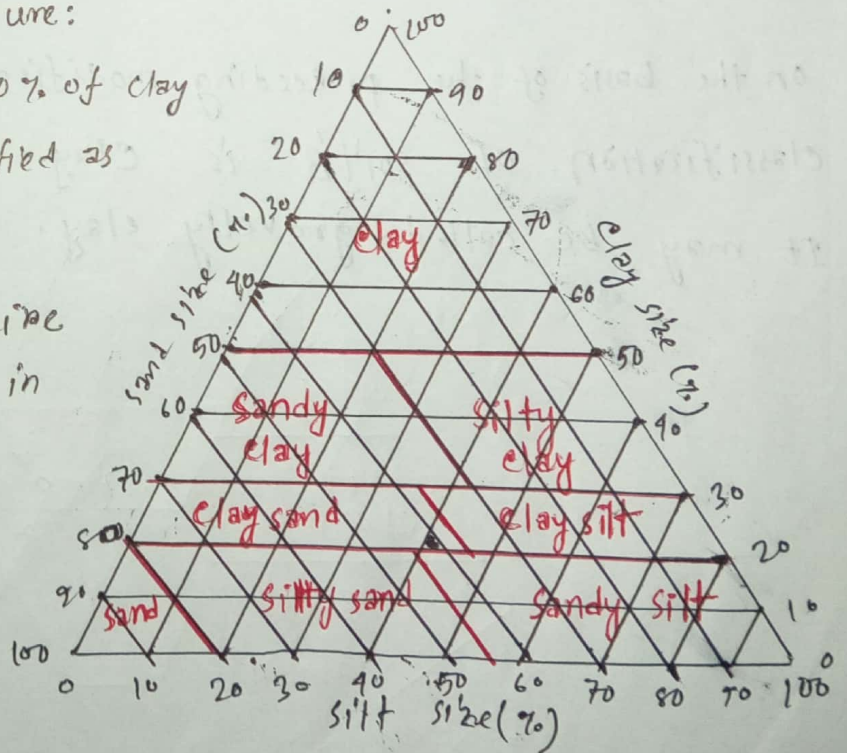 ure:
0% of clay
fied as
ine
in
0 100
10 90
20 80
30 70
40 60
50 50
60 40
70 30
80 20
90 10
100 0
sand size (%)
clay size (%)
clay
sandy clay
silty clay
clay sand
clay silt
sand
silty sand
sandy silt
0 10 20 30 40 50 60 70 80 90 100
silt size (%)